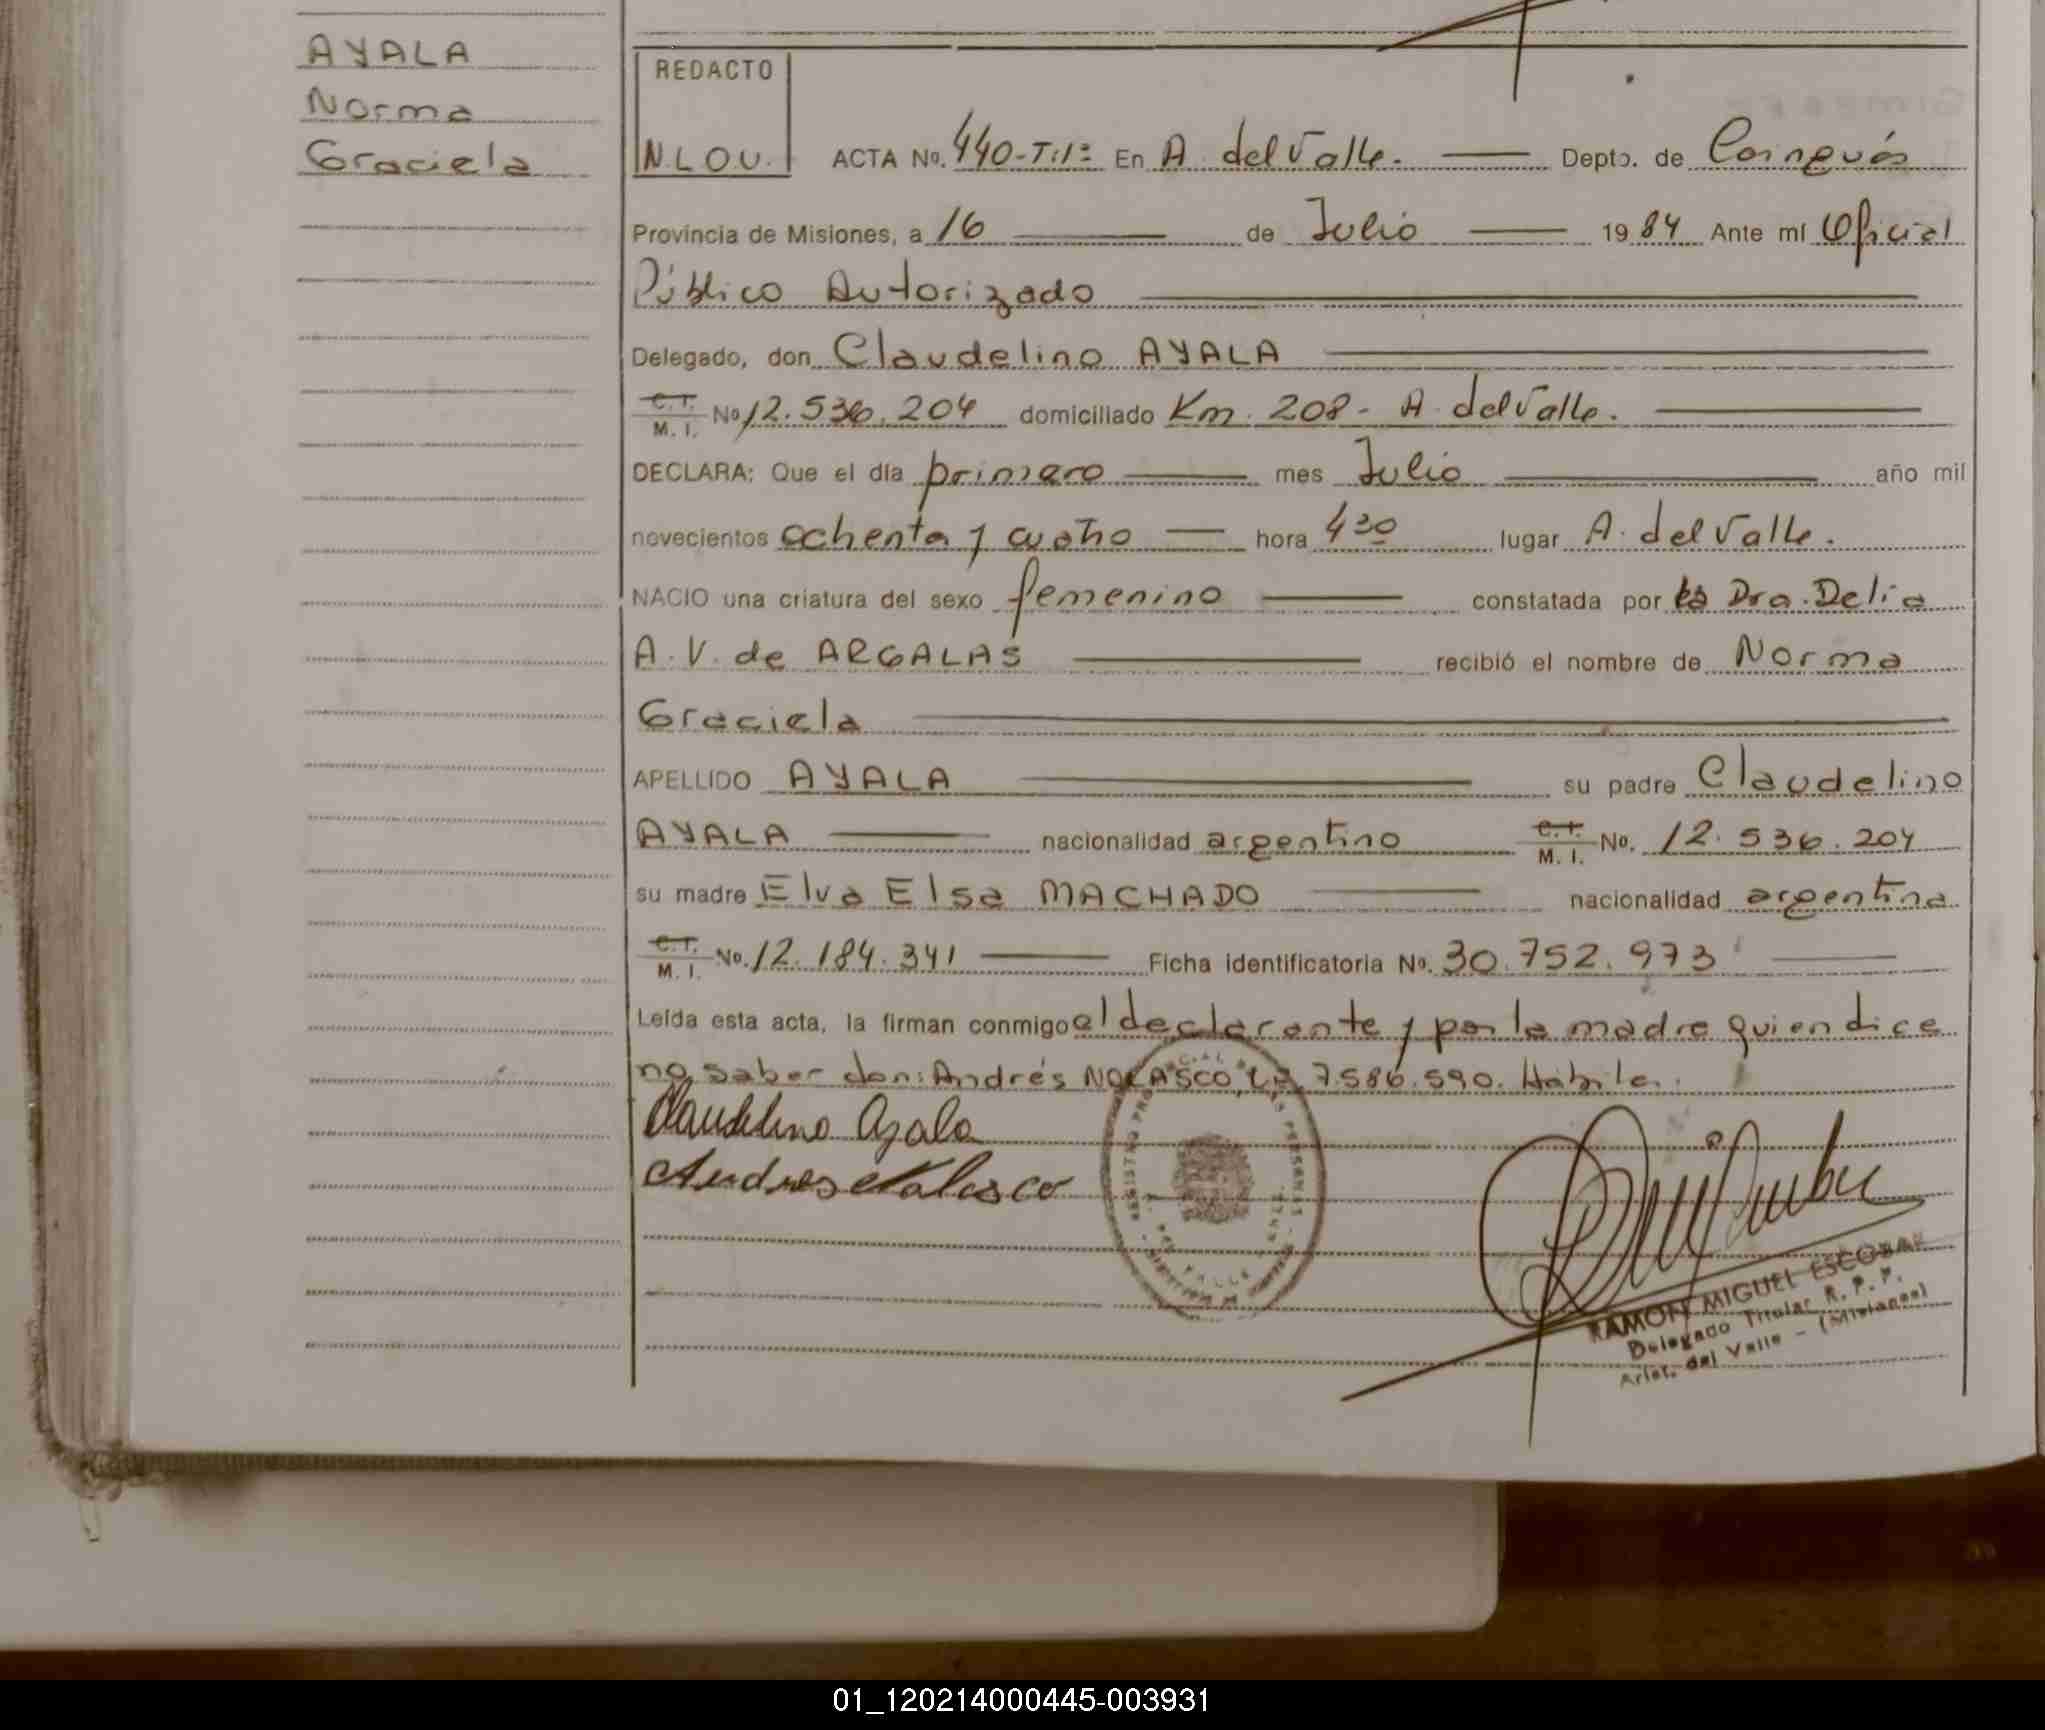 AYALA
Norma
Graciela
REDACTO
N.L.O.V.
ACTA No. 440-T:1º En A. del Valle. Depto. de Caingués
Provincia de Misiones, a 16 de Julio 1984 Ante mí Oficial
Público Autorizado
Delegado, don Claudelino AYALA
C.I. M. I. No 12.536.204 domiciliado Km. 208- A. del Valle.
DECLARA: Que el día primero mes Julio año mil
novecientos ochenta y cuatro hora 4 30 lugar A. del Valle.
NACIO una criatura del sexo femenino constatada por la Dra. Delia
A. V. de ARGALAS recibió el nombre de Norma
Graciela
APELLIDO AYALA su padre Claudelino
AYALA nacionalidad argentino C.I. M. I. No. 12.536.204
su madre Elva Elsa MACHADO nacionalidad argentina
C.I. M. I. No. 12.184.341 Ficha identificatoria No. 30.752.973
Leída esta acta, la firman conmigo el declarante y por la madre quien dice
no saber don: Andrés NOLASCO, 7.586.590. Hábile.
Claudelino Ayala
Andres Nolasco
RAMON MIGUEL ESCOBAR
Delegado Titular R. P. P.
Arist. del Valle - (Misiones)
01_120214000445-003931